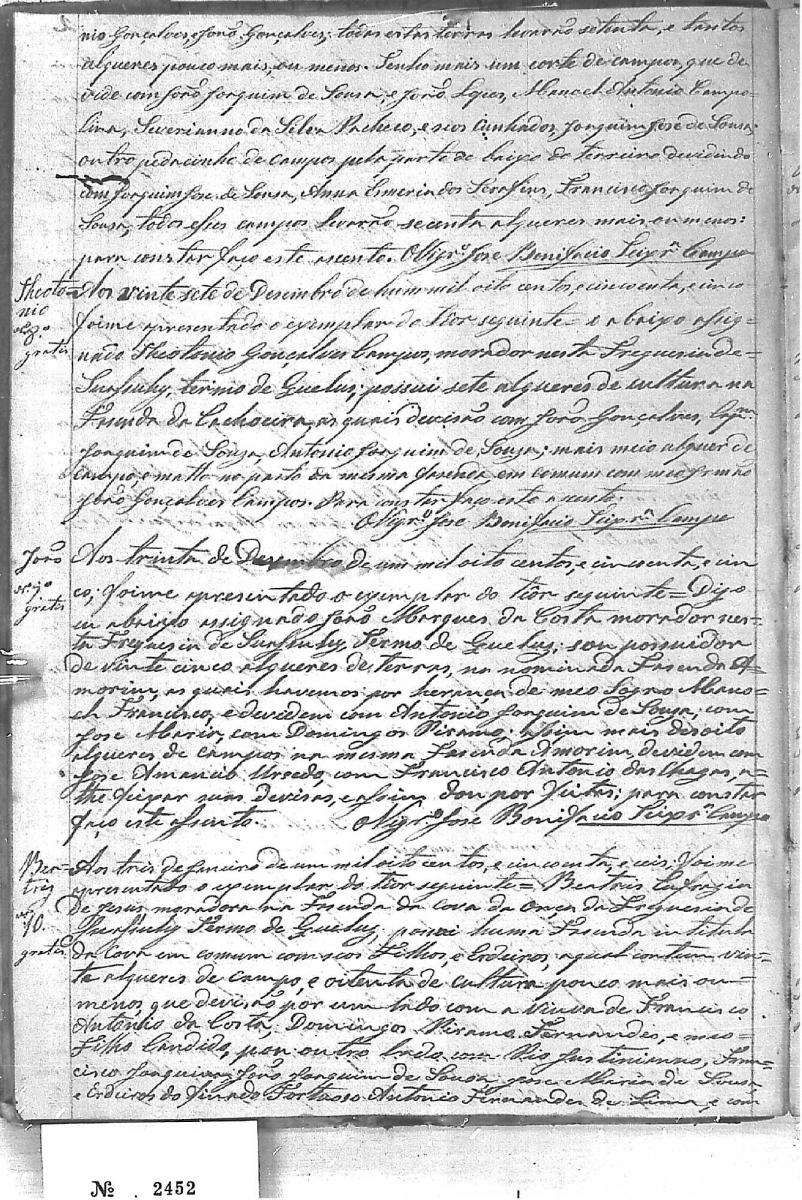 nio Gonçalves, e João Gonçalves; todas estas terras levarão setenta, e tantos
alqueres pouco mais, ou menos. Tenho mais um corte de campos, que de
vide com João Joaquim de Sousa, e João Lopes, Manoel Antonio Campo
lina, Severianno da Silva Pacheco, e seos Cunhados, Joaquim Jose de Sousa;
outro pedacinho de campos pela parte de baixo do terreiro devidindo
com Joaquim Jose de Sousa, Anna Esmeria dos Serafins, Francisco Joaquim de
Sousa, todos esses campos levarão secenta alqueres mais ou menos:
para constar faço este acento. O Vigr.º Jose Bonifacio Campo
Theoto
nio
gratis
Aos vinte sete de Desembro de hum mil oito centos, e cincoenta, e cinco
foi me apresentado o exemplar do tior seguinte = o abaixo assig
nado Theotonio Gonçalves Campos, morador nesta Freguesia de
termo de Quelus; possui sete alqueres de cultura na
Fasenda da Cachoeira, as quais devisão com João Gonçalves,
Joaquim de Souza, Antonio Joaquim de Souza; mais meio alquer de
campo, e matto no pasto da mesma fasenda em comum com meo Irmão
João Gonçalves Campos. Para constar faço este acento.
O Vigr.º Jose Bonifacio Campo
João
gratis
Aos trinta de Desembro de um mil oito centos, e cincoenta, e cin
co, foi me apresentado o exemplar do tior seguinte = Digo
eu abaixo assignado João Marques da Costa morador nes-
ta Freguesia de Termo de Queluz, sou possuidor
de vinte cinco alqueres de terras, na nominada Fasenda A-
morim, as quais havemos por herança de meo Sogro Mano-
el Francisco, e devidem com Antonio Joaquim de Sousa, com
Jose Maria, com Domingos Piramo; assim mais desoito
alqueres de campos na mesma Fasenda Amorim, devidem com
Jose Amancio com Francisco Antonio das Chagas, a-
the fixar suas devisas, e assim dou por feitas; para constar
faço este assento. O Vigr.º Jose Bonifacio Campo
Bea-
triz
10.
gratis
Aos tres de Janeiro de um mil oito centos, e cincoenta, e ceis; foi me
apresentado o exemplar do tior seguinte = Beatris Eufrazia
de Jesus moradora na Fasenda da Cova da Onça da Freguesia de
Termo de Queluz, possui huma Fasenda intitula
da Cova em comum com seos Filhos, e Erdeiros, a qual contem vin-
te alqueres de campo, e oitenta de cultura pouco mais ou
menos que devisão por um lado com a viuva de Francisco
Antonio da Costa, Domingos Piramo Fernandes, e meo
Filho Candido, por outro lado com Pio Justinianno, Fran-
cisco Joaquim, João Joaquim de Sousa, Jose Maria de Sousa
e Erdeiros do finado Antonio Fernandes de Lima, e com
№ 2452